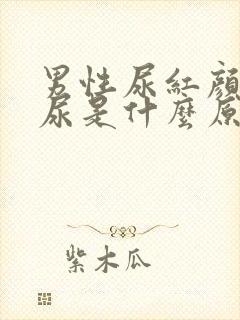 男性尿紅顏
尿是什麼原
紫木瓜